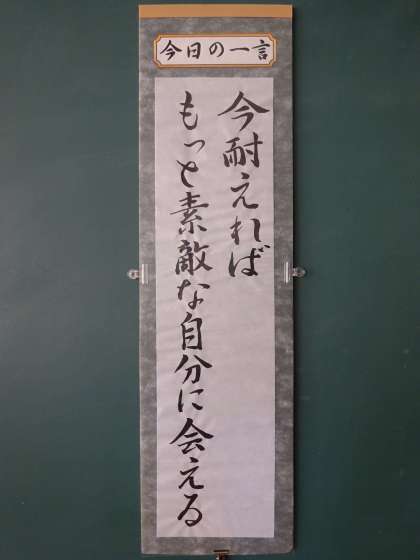 今日の一言
今耐えれば
もっと素敵な自分に会える